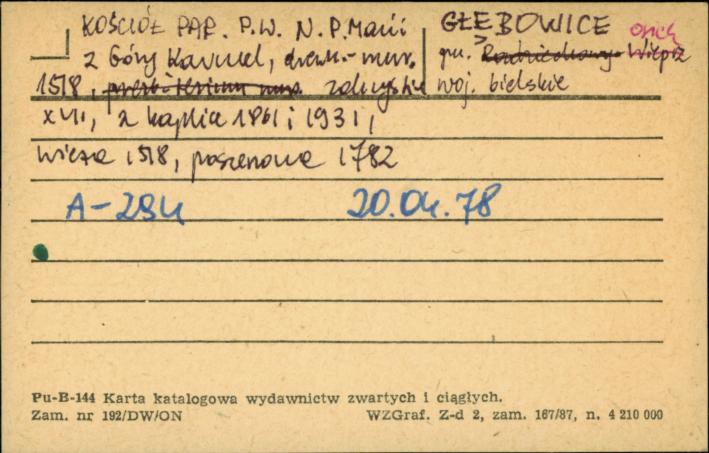 KOŚCIÓŁ PAR. P.W. N.P. Marii
z Góry Karmel, drewn.-mur.
1518, prezbiterium mur. zakrystie
XVII, z kaplice 1861 i 1931,
wieża 1518, poszerzona 1782
GŁĘBOWICE
gm. Radziechowy Wieprz
woj. bielskie
A-294
20.04.78
Pu-B-144 Karta katalogowa wydawnictw zwartych i ciągłych.
Zam. nr 192/DW/ON WZGraf. Z-d 2, zam. 167/87, n. 4 210 000